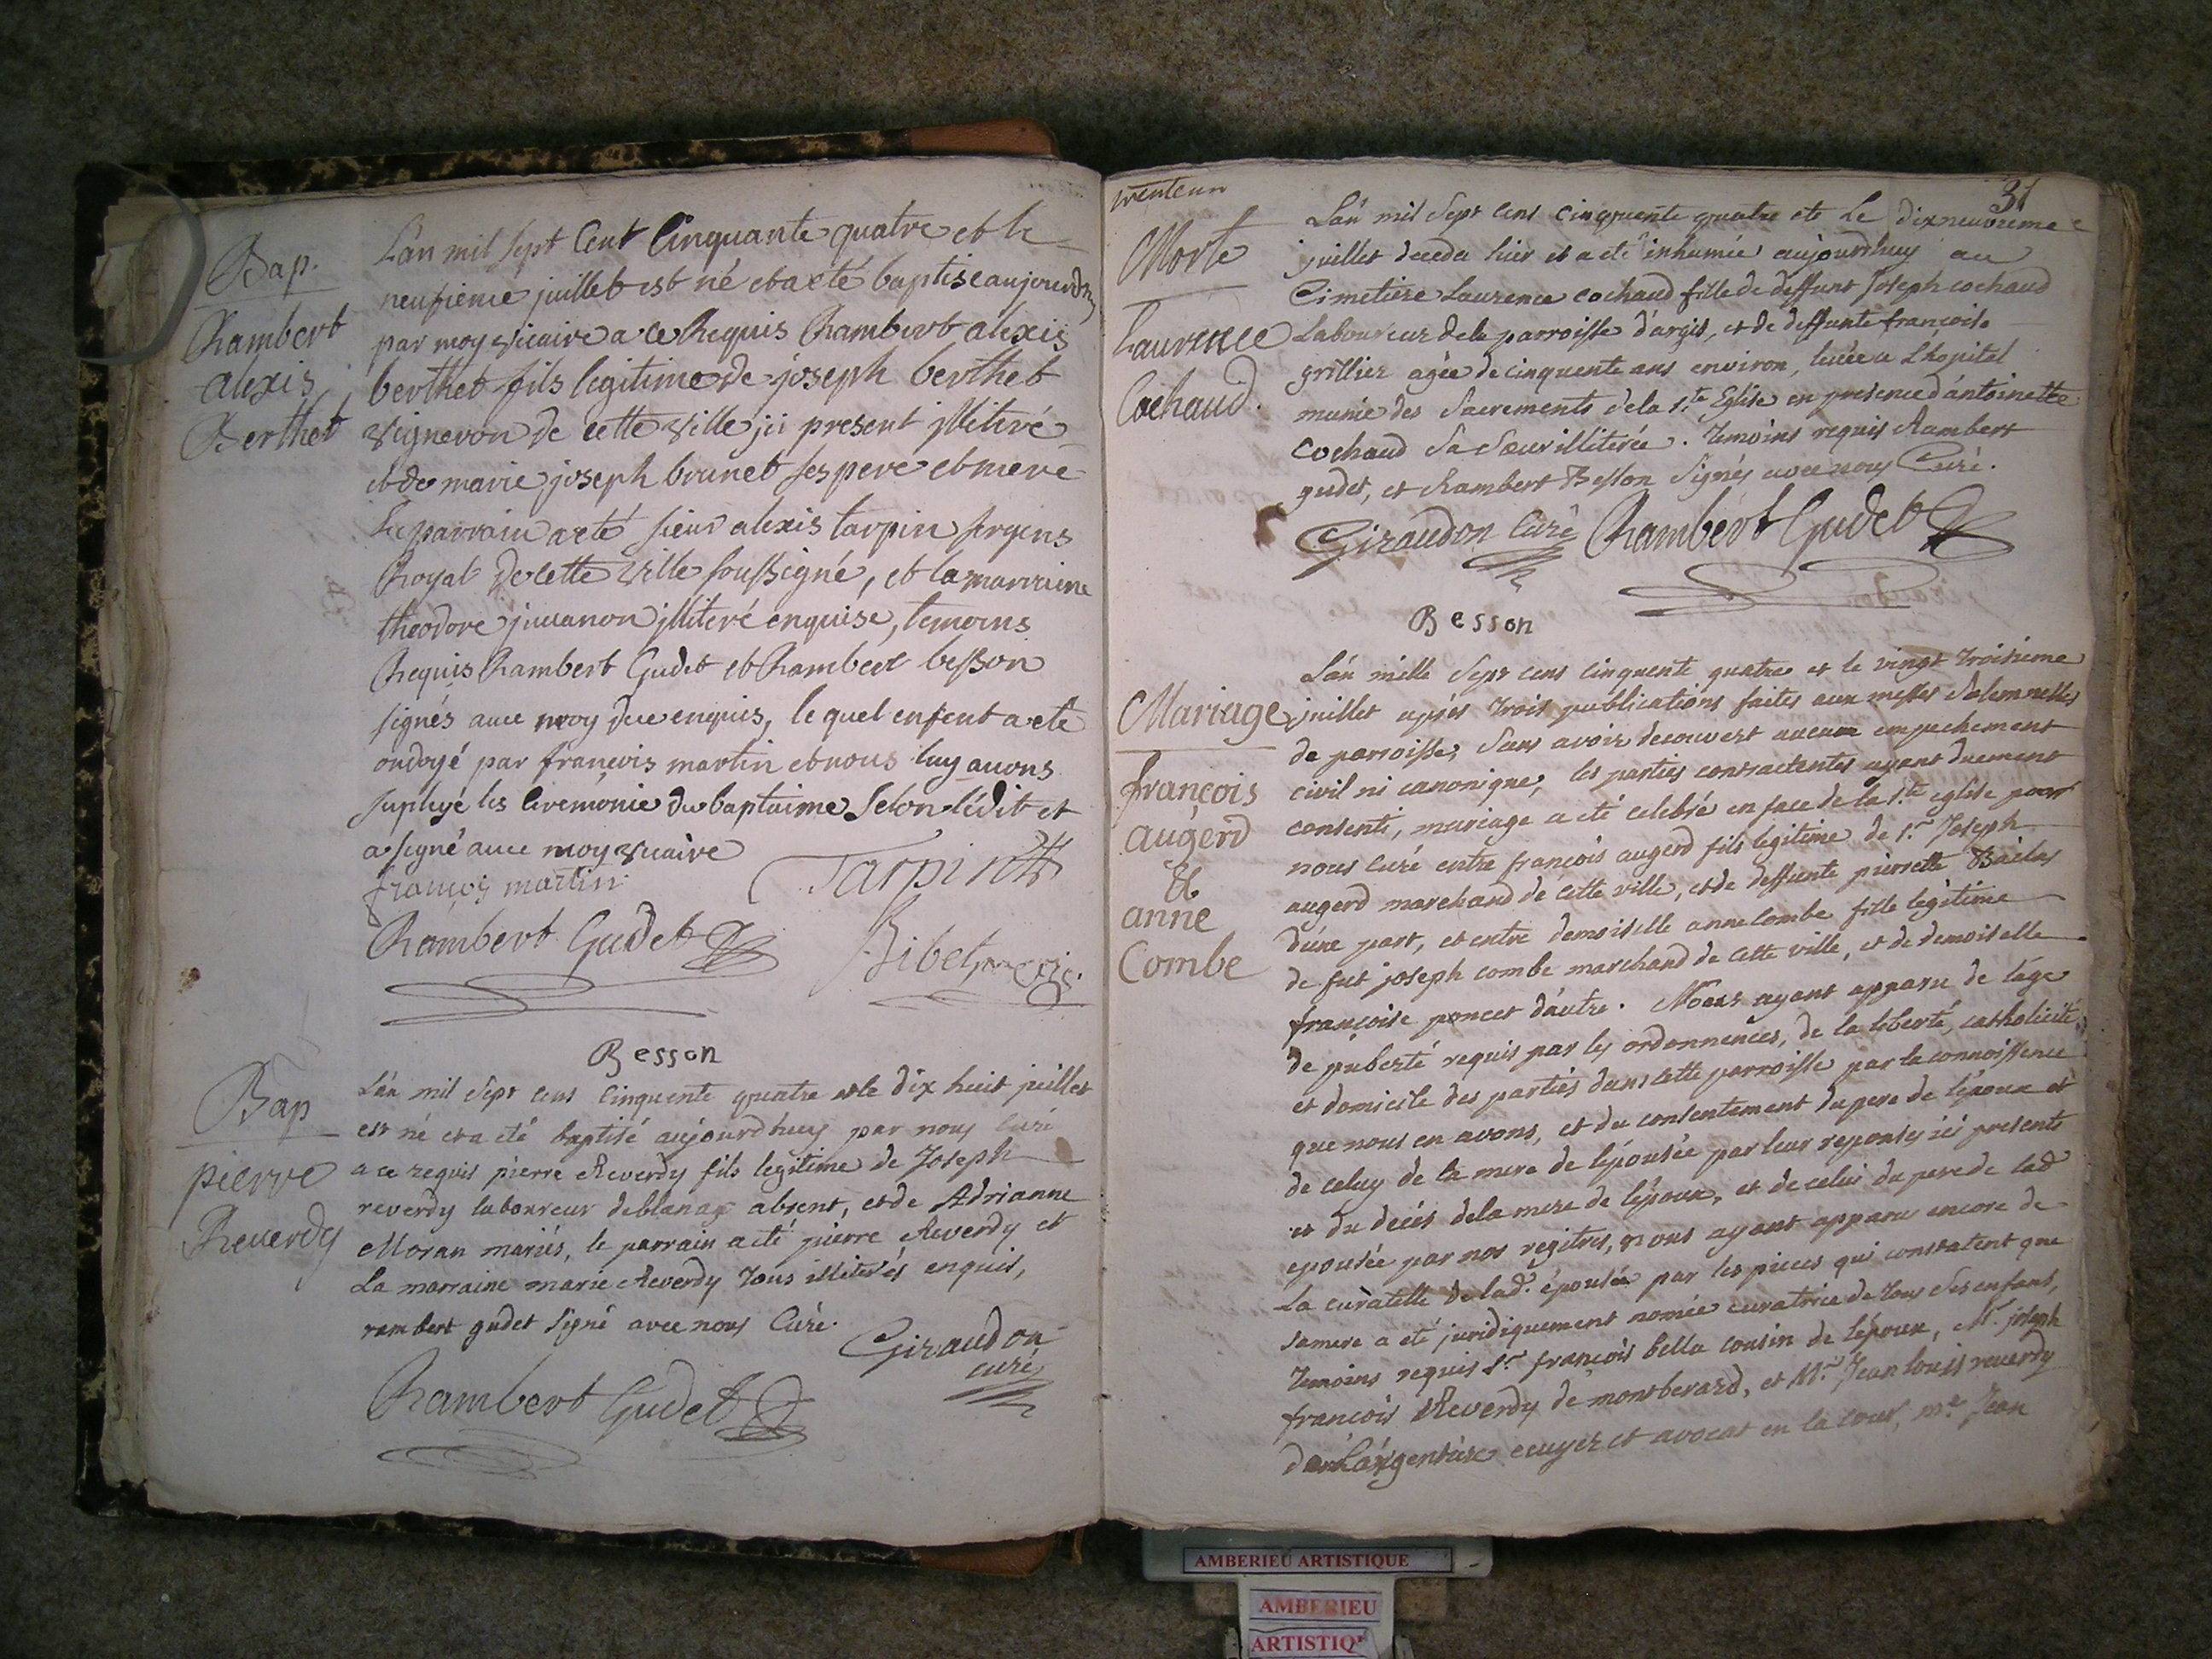 Bap.
Rambert
alexis
Berthet
L'an mil sept Cent Cinquante quatre et le
neufieme juillet est né et a eté baptise aujourdhuy
par moy vicaire a ce Requis Rambert alexis
berthet fils legitime de joseph berthet
vigneron de cette ville ici present illiteré
et de marie joseph brunet ses pere et mere
Le parrain a eté sieur alexis tarpin sergens
Royal de cette ville soussigné, et la marraine
theodore juvanon illiteré enquise, temoins
Requis Rambert Gudet et Rambert besson
signés avec moy de ce enquis, le quel enfent a eté
ondoyé par françois martin et nous luy avons
supleyé les ceremonie du baptaime selon l'édit et
a signé avec moy vicaire
françois martin
Tarpin
Rambert Gudet
Ribet
Besson
Bap
pierre
Reverdy
L'an mil sept cens Cinquente quatre et le dix huit juillet
est né et a été baptisé aujourd'huy par nous Curé
a ce requis pierre Reverdy fils legitime de Joseph
reverdy laboureur de blanaz absent, et de Adrianne
Moran mariés, le parrain a été pierre Reverdy et
La marraine marie Reverdy tous illiterés enquis,
rambert gudet signé avec nous Curé.
Giraudon
curé
Rambert Gudet
trente un
31
Morte
Laurence
Cochaud.
L'an mil sept cens cinquente quatre et le dixneuvieme
juillet deceda hier et a eté inhumée aujourdhuy au
Cimetiere Laurence cochaud fille de deffunt Joseph cochaud
Laboureur de la parroisse d'argis, et de deffunte françoise
grillier agée de cinquente ans environ, levée a Lhopital
munie des Sacrements de la s.te Eglise en presence d'antoinette
cochaud sa soeur illiterée. temoins requis Rambert
gudet, et Rambert Besson signés avec nous Curé.
Giraudon Curé Rambert Gudet
Besson
Mariage
françois
augerd
Et
anne
Combe
L'an mille sept cens cinquente quatre et le vingt troisieme
juillet après trois publications faites aux messes solemnelles
de parroisse, sans avoir decouvert aucun empechement
civil ni canonique, les parties contractentes ayant duement
consenti, mariage a eté celebré en face de la s.te eglise par
nous curé entre françois augerd fils legitime de s.r Joseph
augerd marchand de cette ville, et de deffunte pierrette Bailas
d'une part, et entre demoiselle anne Combe fille legitime
de fut joseph combe marchand de cette ville, et de demoiselle
françoise poncet d'autre. Nous ayant apparu de l'age
de puberté requis par les ordonnences, de la liberté, catholicité
et domicile des parties dans cette parroisse par la connoissence
que nous en avons, et du consentement du pere de l'époux et
de celuy de la mere de l'épousée par leur reponses ici presents
et du decés de la mere de l'époux, et de celui du pere de lad
epousée par nos regitres, nous ayant apparu encore de
La curatelle de lad. épousée par les pieces qui constatent que
sa mere a eté juridiquement nomée curatrice de tous ses enfans,
temoins requis s.r françois bella cousin de l'époux, M.r joseph
françois Reverdy de montberard, et M.r Jean louis reverdy
de L'argentiere ecuyer et avocat en la cour, m.e Jean
AMBERIEU ARTISTIQUE
AMBERIEU
ARTISTIQ